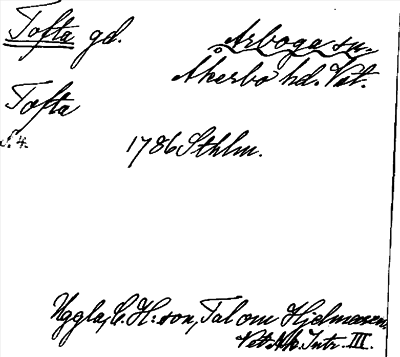 Tofta gd. Arboga sn.
Åkerbo hd. Vet.
Tofta
s. 4. 1786 Sthlm.
Uggla, C. H:son, Tal om Hjelmaren,
Vet. Ak. Intr. III.